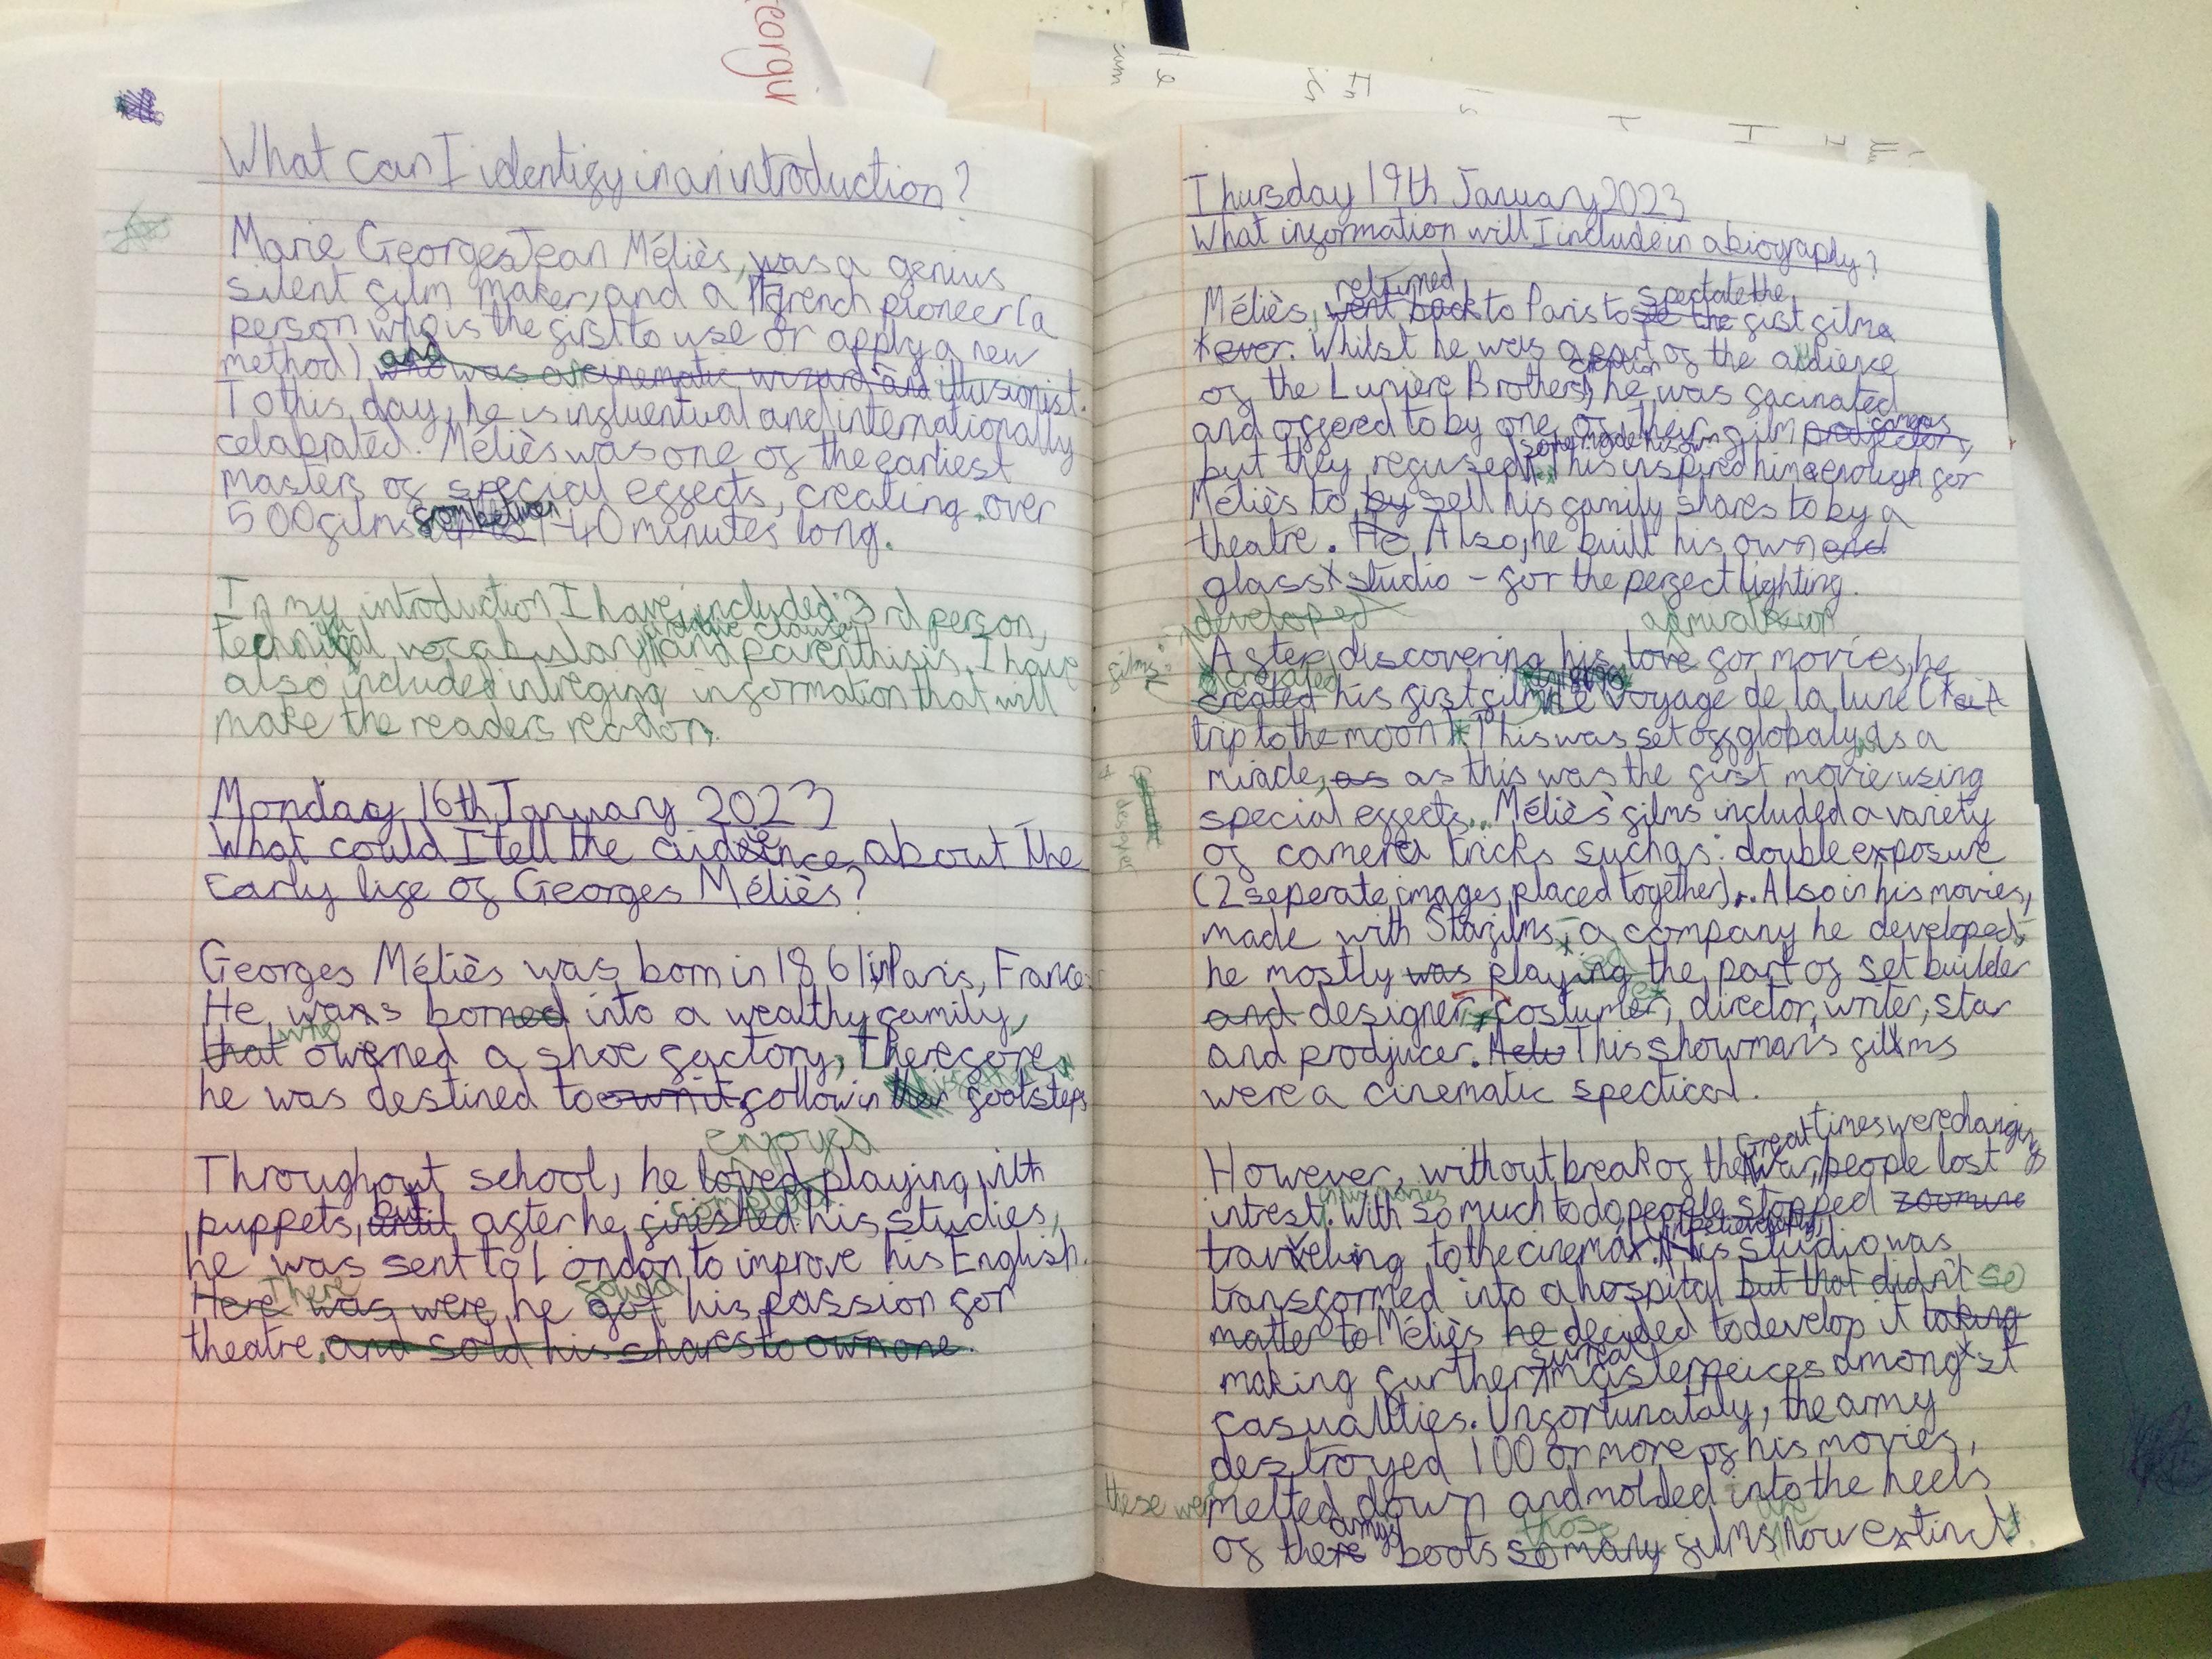 What can I identify in an introduction?
Marie Georges Jean Méliès, was a genius
silent film maker, and a French pioneer (a
person who is the first to use or apply a new
method) and who was a cinematic wizard and illusionist.
To this day, he is influentual and internationally
celabrated. Méliès was one of the earliest
masters of special effects, creating over
500 films from betwen 1-40 minutes long.
In my introduction I have included: 3rd person,
technical vocabulary and parenthisis. I have
also included intreging information that will
make the readers read on.
Monday 16th January 2023
What could I tell the audience about the
early life of Georges Méliès?
Georges Méliès was born in 1861 in Paris, France.
He was borned into a wealthy family,
who
that owened a shoe factory, therefore
he was destined to own it follow in their footsteps
enjoyed
Throughout school, he loved playing with
completed
puppets, until but after he finished his studies,
he was sent to London to improve his English.
There found
Here was were he got his passion for
theatre. and sold his shares to own one.
Thursday 19th January 2023
What information will I include in a biography?
returned spectate the
Méliès, went back to Paris to se the fist film
ever. Whilst he was a part of the audience
creation
of the Lumière Brothers, he was facinated
cameras
and offered to by one of their film projectors,
so he made his own
but they refused. This inspired him enough for
Méliès to by sell his family shares to by a
theatre. He Also, he built his own and
glass studio - for the perfect lighting.
developed admiration
films
After discovering his love for movies, he
created his fist film Le Voyage de la lune (A
trip to the moon). This was set off globaly as a
miracle, as as this was the fist movie using
special effects. Méliès' films included a variety
+ designer
of camera tricks such as: double exposure
(2 seperate images placed together). Also in his movies,
made with Starfilms, a company he developed,
he mostly was playing the part of set builder
and designer, costumer, director, writer, star
and prodjucer. Melie This showman's films
were a cinematic spectical.
Great times were changing
However, without break of the War, people lost
in his movies
intrest. With so much to do people stopped zoomine
traveling to the cinema. His studio was
transformed into a hospital but that didn't so
matter to Méliès he decided to develop it taking
surreal
making further masterpeices amongst
casualities. Unfortunataly, the army
destroyed 100 or more of his movies,
these were melted down and molded into the heels
army's those
of there boots so many films now extinct.